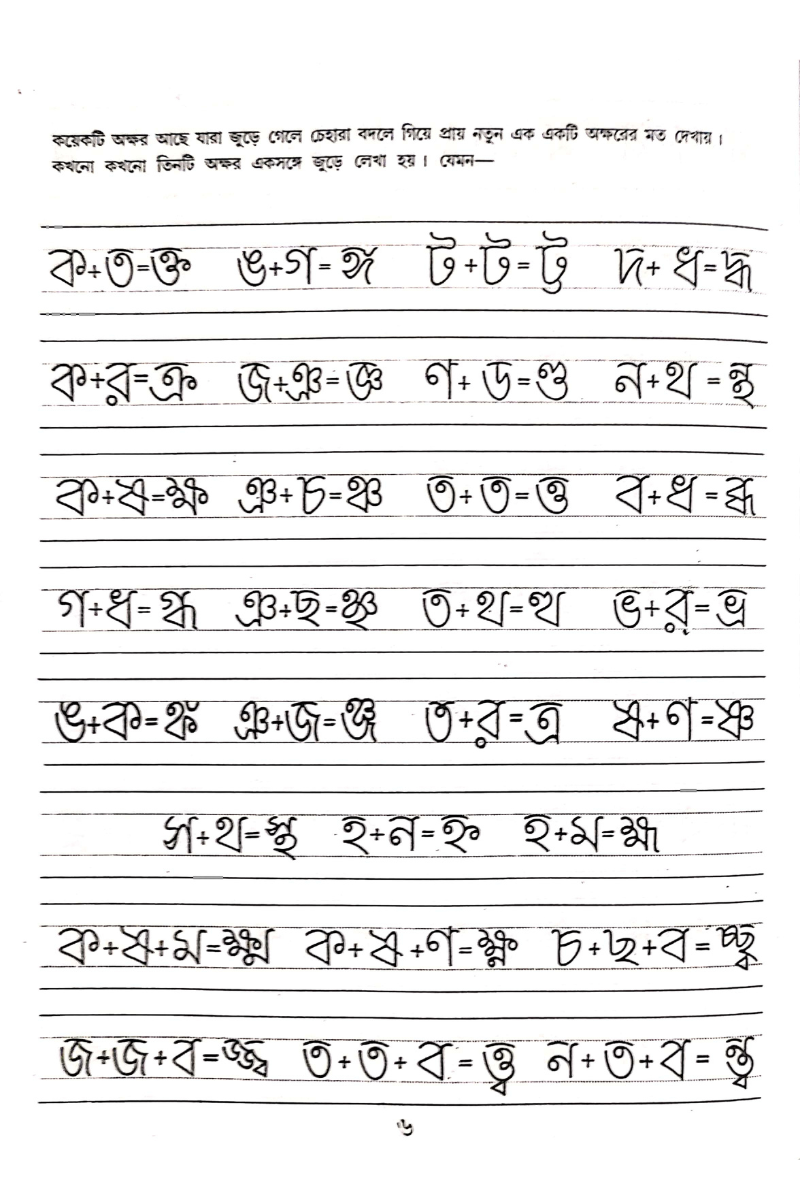 কয়েকটি অক্ষর আছে যারা জুড়ে গেলে চেহারা বদলে গিয়ে প্রায় নতুন এক একটি অক্ষরের মত দেখায়।
কখনো কখনো তিনটি অক্ষর একসঙ্গে জুড়ে লেখা হয়। যেমন—
ক+ত=ক্ত ঙ+গ=ঙ্গ ট+ট=ট্ট দ+ধ=দ্ধ
ক+র=ক্র জ+ঞ=জ্ঞ ণ+ড=ণ্ড ন+থ=ন্থ
ক+ষ=ক্ষ ঞ+চ=ঞ্চ ত+ত=ত্ত ব+ধ=ব্ধ
গ+ধ=গ্ধ ঞ+ছ=ঞ্ছ ত+থ=ত্থ ভ+র=ভ্র
ঙ+ক=ঙ্ক ঞ+জ=ঞ্জ ত+র=ত্র ষ+ণ=ষ্ণ
স+থ=স্থ হ+ন=হ্ন হ+ম=হ্ম
ক+ষ+ম=ক্ষ্ম ক+ষ+ণ=ক্ষ্ণ চ+ছ+ব=চ্ছ্ব
জ+জ+ব=জ্জ্ব ত+ত+ব=ত্ত্ব ন+ত+ব=ন্ত্ব
৬